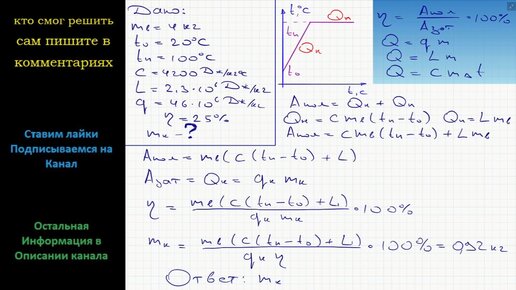 кто смог решить
сам пишите в
комментариях
Ставим лайки
Подписываемся на
Канал
Остальная
Информация в
Описании канала
Дано:
mв = 4 кг
t₀ = 20°C
tп = 100°C
C = 4200 Дж/кг°C
L = 2,3·10⁶ Дж/кг
q = 46·10⁶ Дж/кг
η = 25%
mк - ?
t,°C
tп
t₀
Qн
Qп
t,c
η = Aпол/Aзат · 100%
Q = q m
Q = L m
Q = C m Δt
Aпол = Qн + Qп
Qн = C mв (tп - t₀) Qп = L mв
Aпол = C mв (tп - t₀) + L mв
Aпол = mв (C (tп - t₀) + L)
Aзат = Qк = qк mк
η = mв (C (tп - t₀) + L) / qк mк · 100%
mк = mв (C (tп - t₀) + L) / qк η · 100% = 0,92 кг
Ответ: mк